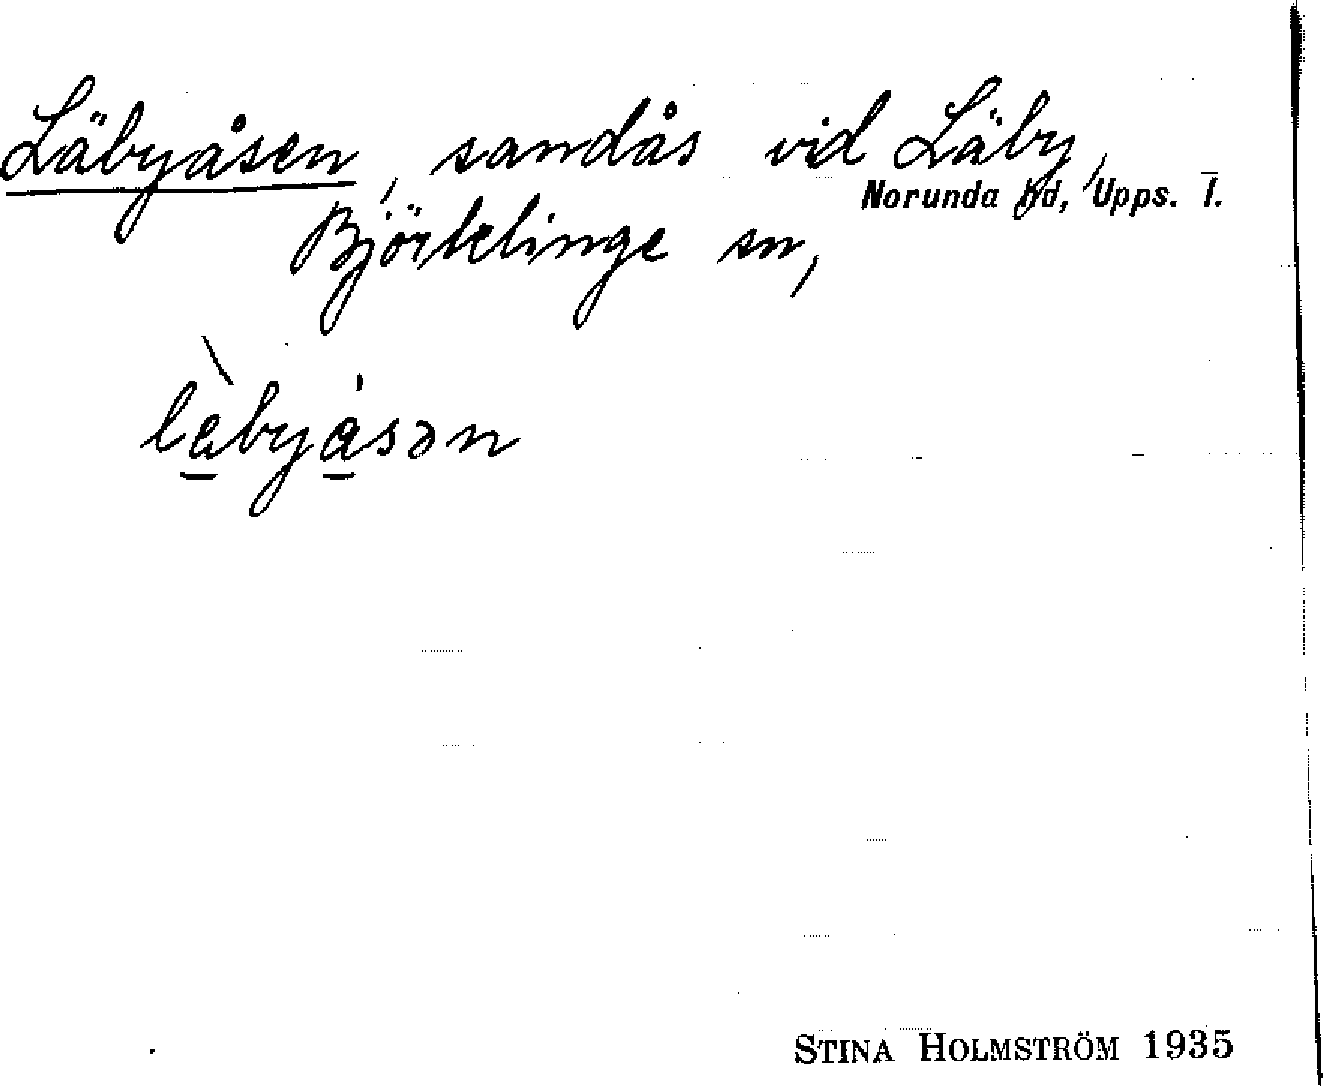 Läbyåsen, sandås vid Läby,
Norunda hd, Upps. l.
Björklinge sn,
lèbyåsən
STINA HOLMSTRÖM 1935